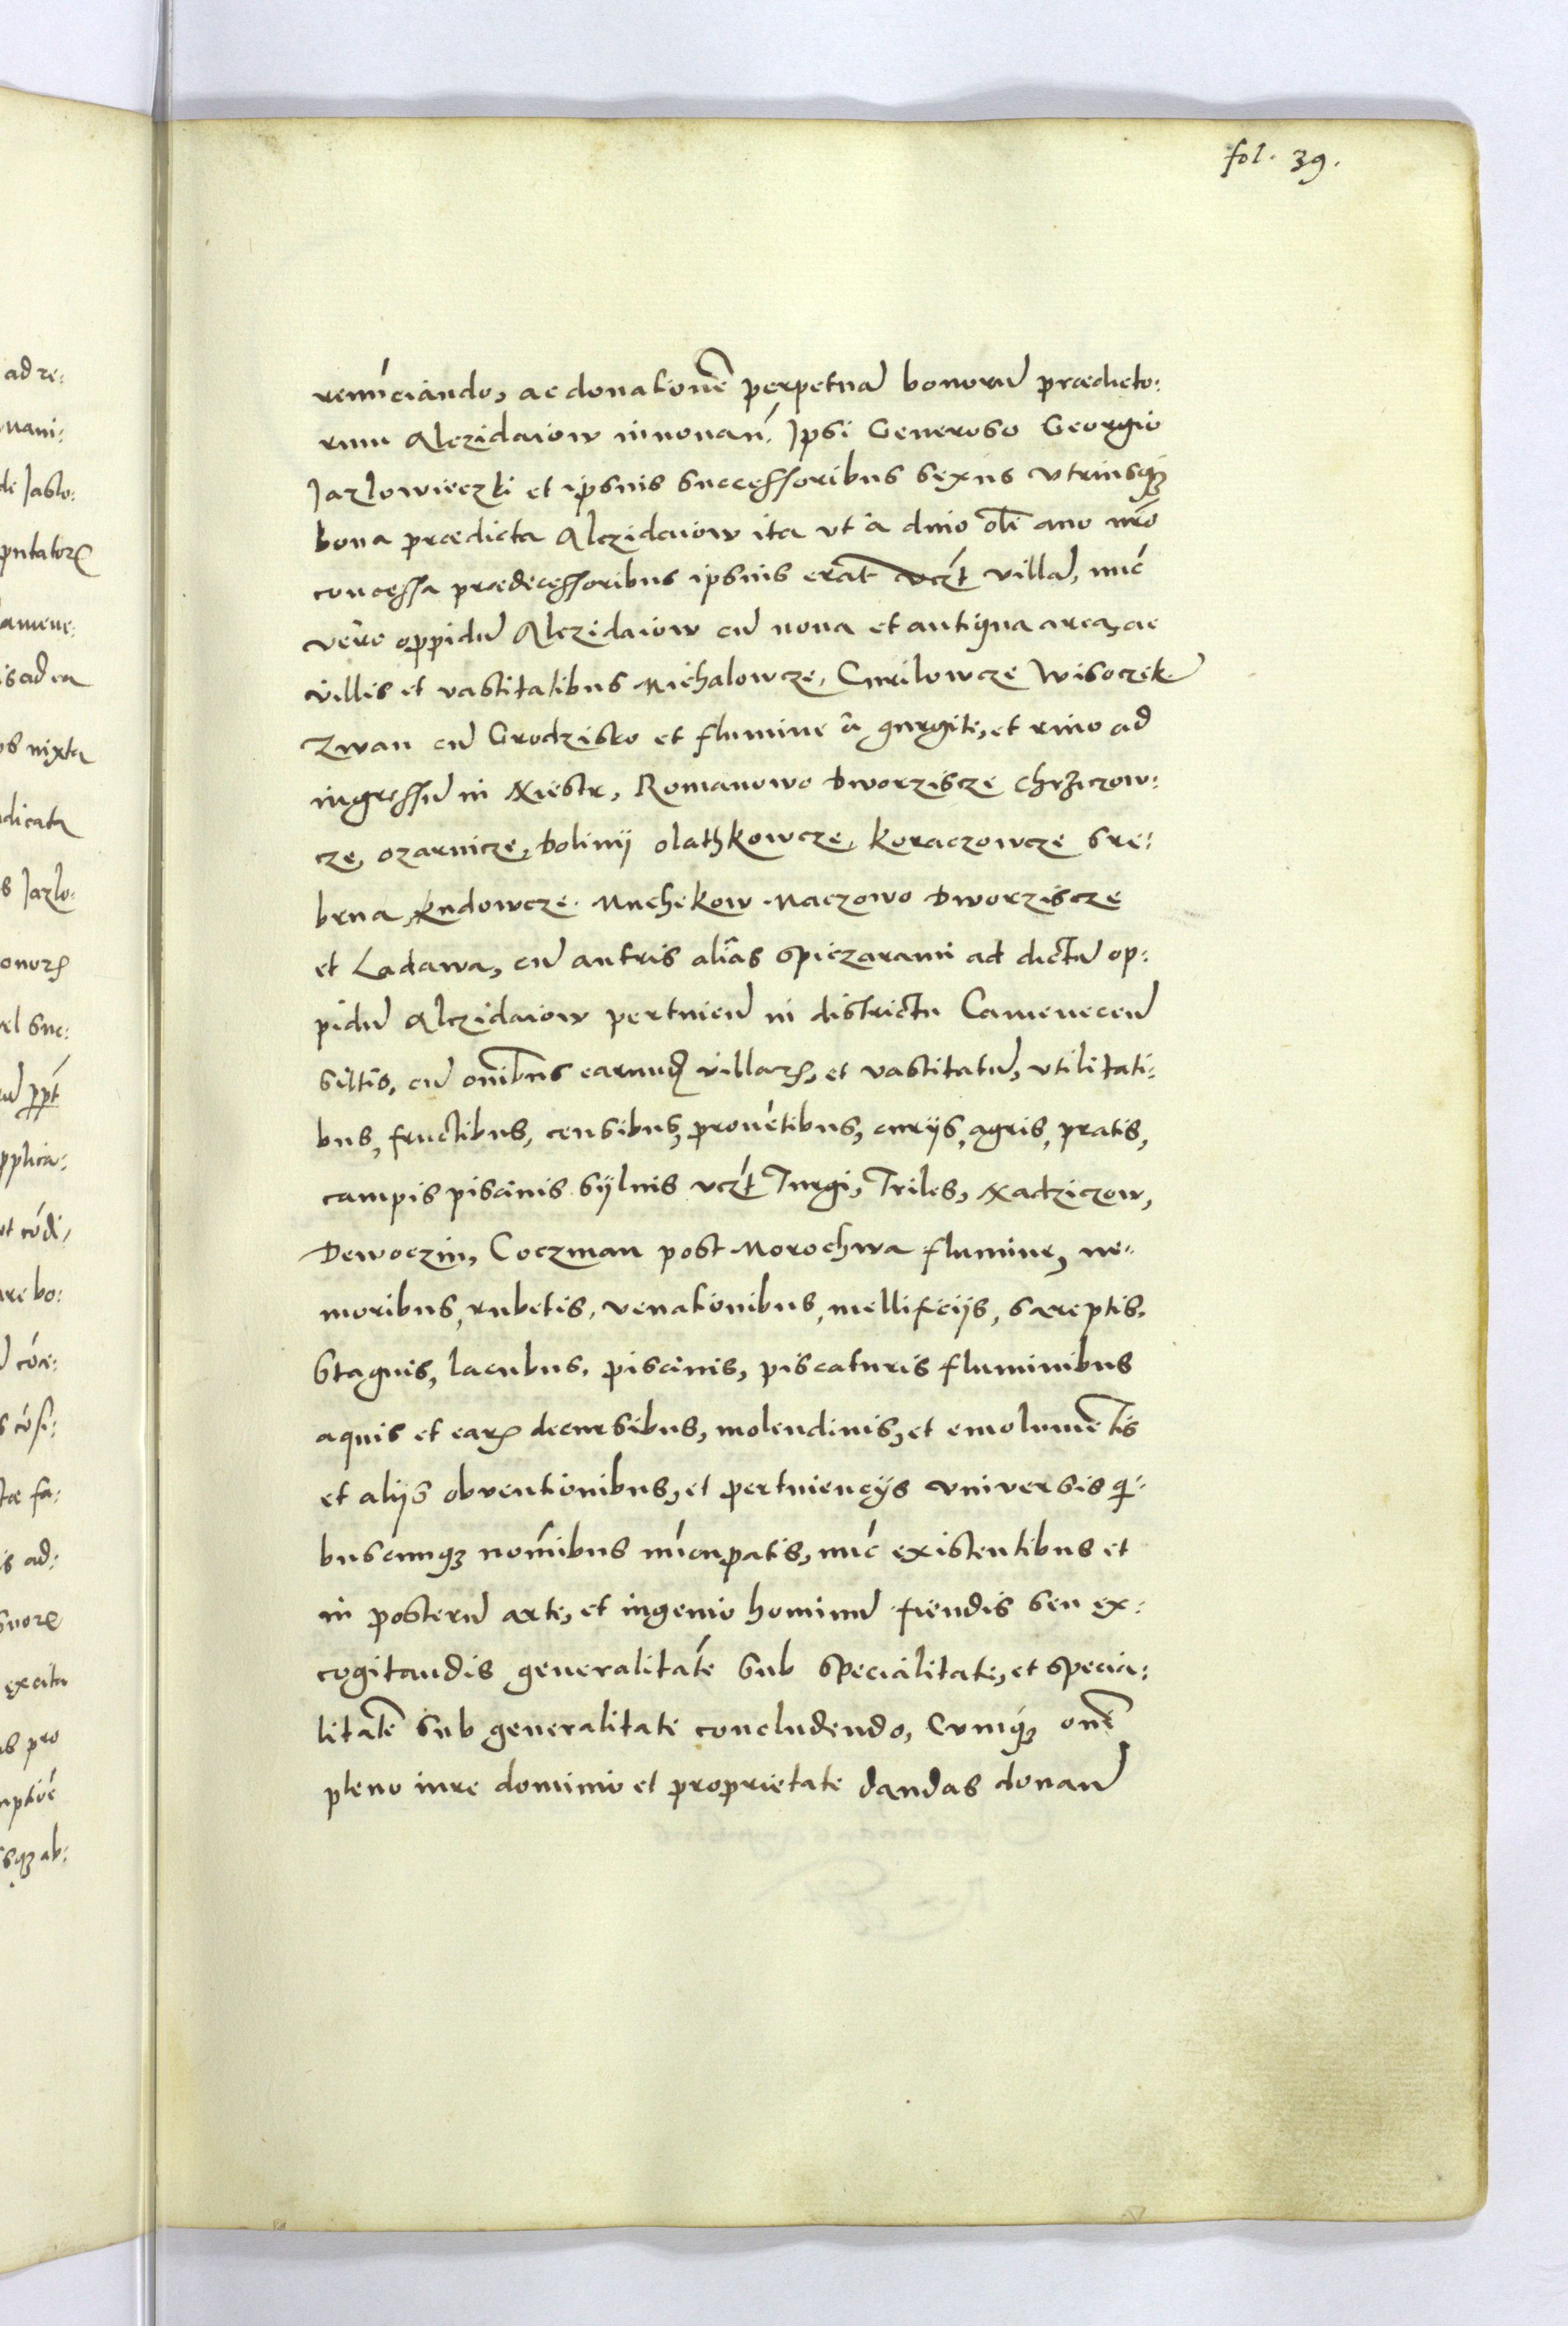 fol. 39.
renūciando, ac donationē perpetuā bonorū prædicto:
rum Alczidaiow innouan̄. Ipsi Generoso Georgio
Jazlowieczki et ipsius successoribus sexus vtriusq₃
bona prædicta Alczidaiow ita vt à diuo olī auo nr̄o
concessa prædecessoribus ipsius erāt vcz̄t villā, nūc
vero oppidū Alczidaiow cū noua et antiqua arca, ac
villis et vastitatibus Michalowcze, Curilowcze Wisoczek
Zwan cū Grodzisko et flumine à gurgite, et riuo ad
ingressū in Niestr, Romanowo Dworziscze Chrziczow:
cze, ozarnicze, Dolinij olathkowcze, Koraczowcze Sre:
brna, Kudowcze. Muchekow Maczowo Dworziscze
et Ladawa, cū antris aliâs spiczarami ad dictū op:
pidū Alczidaiow pertinen̄ in districtu Camenecen̄
siltis, cū onībus earund villar, et vastitatū, vtilitati:
bus, fructibus, censibus, prouētibus, curijs, agris, pratis,
campis piscinis sijluis vcz̄t Turgi, Triles, Nadziczow,
Dewoczin, Coczman post Morochwa flumine, ne:
moribus, rubetis, venationibus, mellificijs, særeptis,
stagnis, lacubus, piscinis, piscaturis fluminibus
aquis et ear decursibus, molendinis, et emolumētis
et alijs obventionibus, et pertinencijs vniversis qi:
buscunq₃ nomībus nūcupatis, nūc existentibus et
in posterū arte, et ingenio hominū fiendis seu ex:
cogitandis generalitatē sub specialitate, et specia:
litatē sub generalitate concludendo, Cumq₃ onē
pleno iure dominio et proprietate dandas donan̄